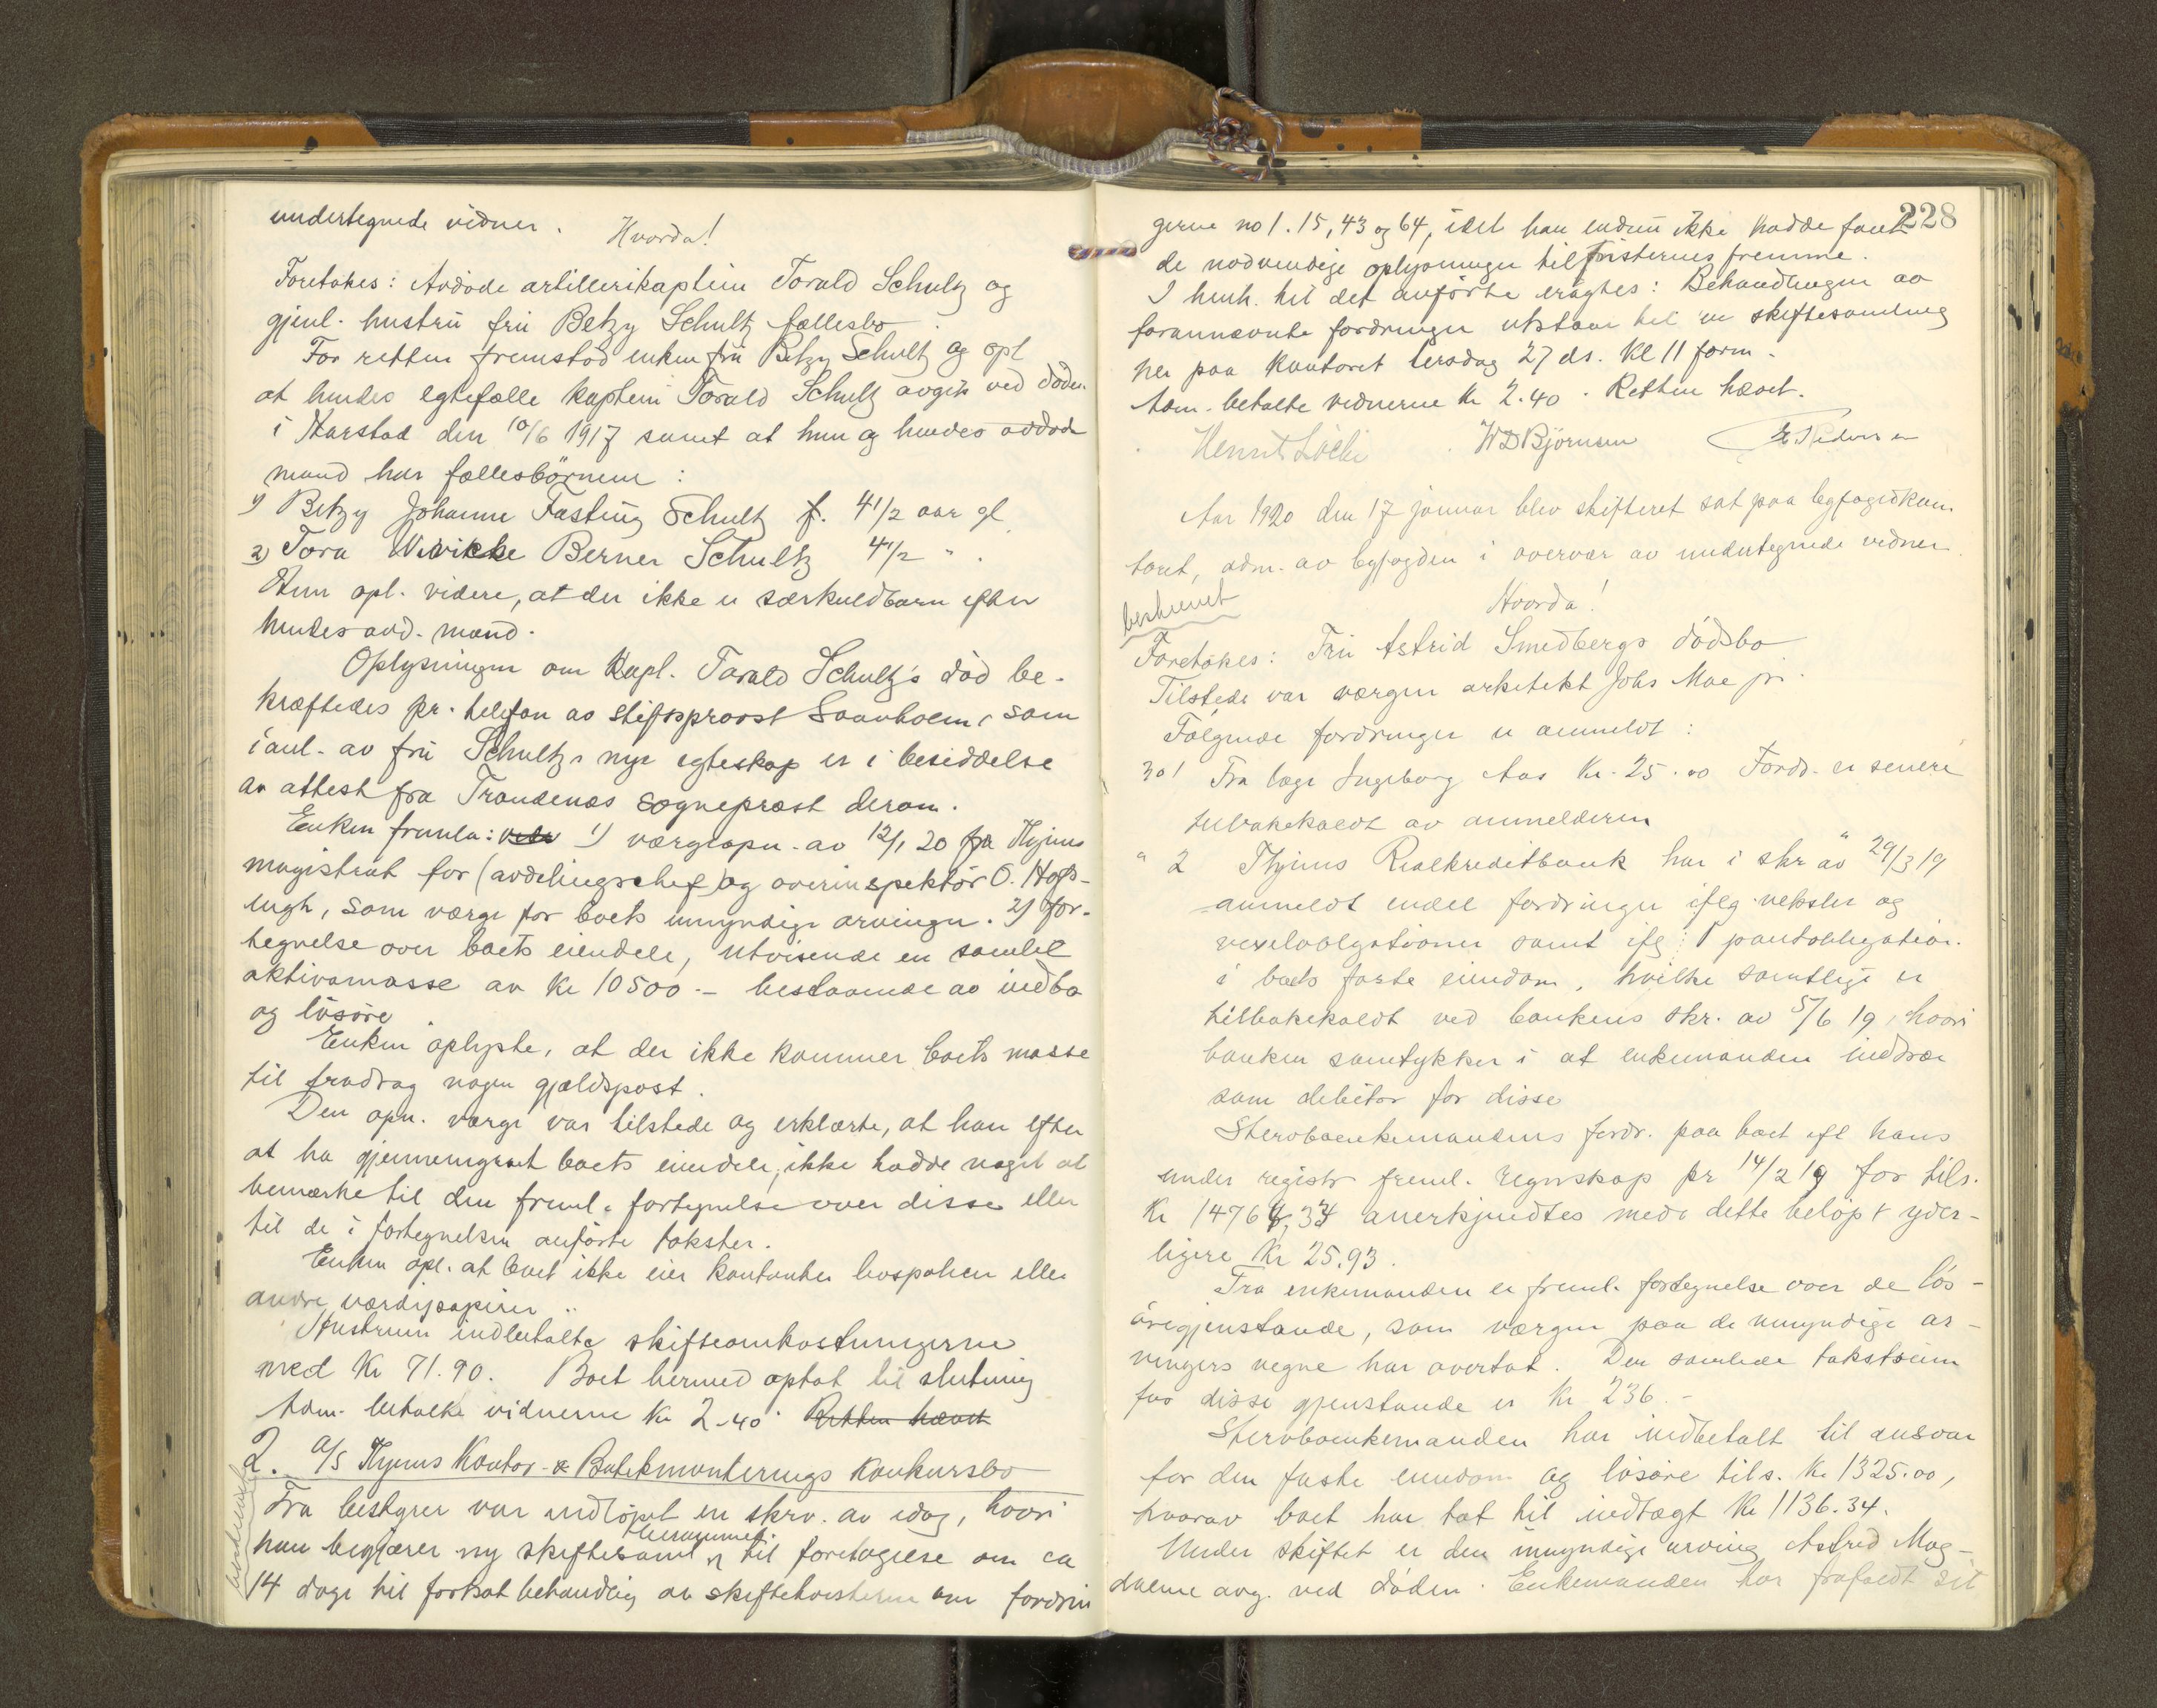 undertegnede vidner.
Hvorda!
Foretokes: Avdøde artillerikaptein Torald Schultz og
gjenl. hustru fru Betzy Schultz fællesbo
For retten fremstod enken fru Betzy Schultz og opl
at hendes egtefælle kaptein Torald Schultz avgik ved døden
i Harstad den 10/6 1917 samt at hun og hendes avdøde
mand har fællesbörnene:
1) Betzy Johanne Fasting Schultz f. 4 1/2 aar gl
2) Tora Wivikke Berner Schultz 4 1/2 " .
Hun opl. videre, at der ikke er særkuldbarn efter
hendes avd. mand.
Oplysningen om Kapt. Torald Schultz's död be-
kræftedes pr. telefon av stiftsprovst som
i anl. av fru Schultz's nye egteskap er i besiddelse
av attest fra Trondenæs sogneprest derom.
Enken fremla: 1) værgeopn. av 12/1 20 fra Thjems
magistrat for (avdelingschef) og overinspektør O. Hofs-
, som værge for boets umyndige arvinger. 2) for-
tegnelse over boets eiendele, utvisende en samlet
aktivamasse av kr 10500.- bestaaende av indbo
og lösöre
Enken oplyste, at der ikke kommer boets masse
til fradrag nogen gjældspost.
Den opn. værge var tilstede og erklærte, at han efter
at ha gjennemgaat boets eiendele, ikke hadde noget at
bemærke til den freml. fortegnelse over disse eller
til de i fortegnelsen anførte takster.
Enken opl. at boet ikke eier kontanter eller
andre værdipapirer
Hustruen indbetalte skifteomkostningerne
med Kr 71.90. Boet hermed optat til slutning
Adm. betalte vidnerne Kr 2.40. Retten hævet
2. A/S Thjems Kontor- & Butikmonterings Konkursbo
Fra bestyrer var indløpet en skrv. av idag, hvori
berammet
han begjærer ny skiftesaml til foretagelse om ca
14 dage til fortsat behandling av skiftetvisterne om fordrin
beskrevet
228
gerne no 1. 15, 43 og 64, idet han endnu ikke hadde faaet
de nødvendige oplysninger til tvisternes fremme.
I henh. til det anførte eragtes: Behandlingen av
forannævnte fordringer utstaar til en skiftesamling
her paa kontoret tirsdag 27 ds. kl 11 form.
Adm. betalte vidnerne kr 2.40. Retten hævet.
W D Björnsen E Pedersen
Aar 1920 den 17 januar blev skifteret sat paa byfogedkon.
toret, adm. av byfogden i overvær av undertegnede vidner
beskrevet
Hvorda!
Foretokes: Fru Astrid Smedbergs dödsbo
Tilstede var værgen arkitekt Johs Moe jr.
Følgende fordringer er anmeldt:
No 1 Fra læge Ingeborg Aas Kr. 25.00 Fordr. er senere
tilbakekaldt av anmelderen
" 2 Thjems Realkreditbank har i skr av 29/3 19
anmeldt endel fordringer iflg. veksler og
vexelobligationer samt ifl. 1 pantobligation
i boets faste eiendom, hvilke samtlige er
tilbakekaldt ved bankens skr. av 5/6 19, hvori
banken samtykker i at enkemanden indtræ
som debitor for disse
Stervboenkemandens fordr. paa boet ifl hans
under registr freml. regnskap pr 14/2 19 for tils.
Kr 14764,34 anerkjendtes med dette belöp + yder-
ligere Kr 25.93.
Fra enkemanden er freml. fortegnelse over de lös-
öregjenstande, som værgen paa de umyndige ar-
vingers vegne har overtat. Den samlede takstsum
for disse gjenstande er Kr 236.-
Stervboenkemanden har indbetalt til ansvar
for den faste eiendom og lösöre tils. Kr. 1325.00,
hvorav boet har tat til indtægt Kr 1136.34.
Under skiftet er den umyndige arving Astrid Mag-
dalene avg. ved döden. Enkemanden har frafaldt sit